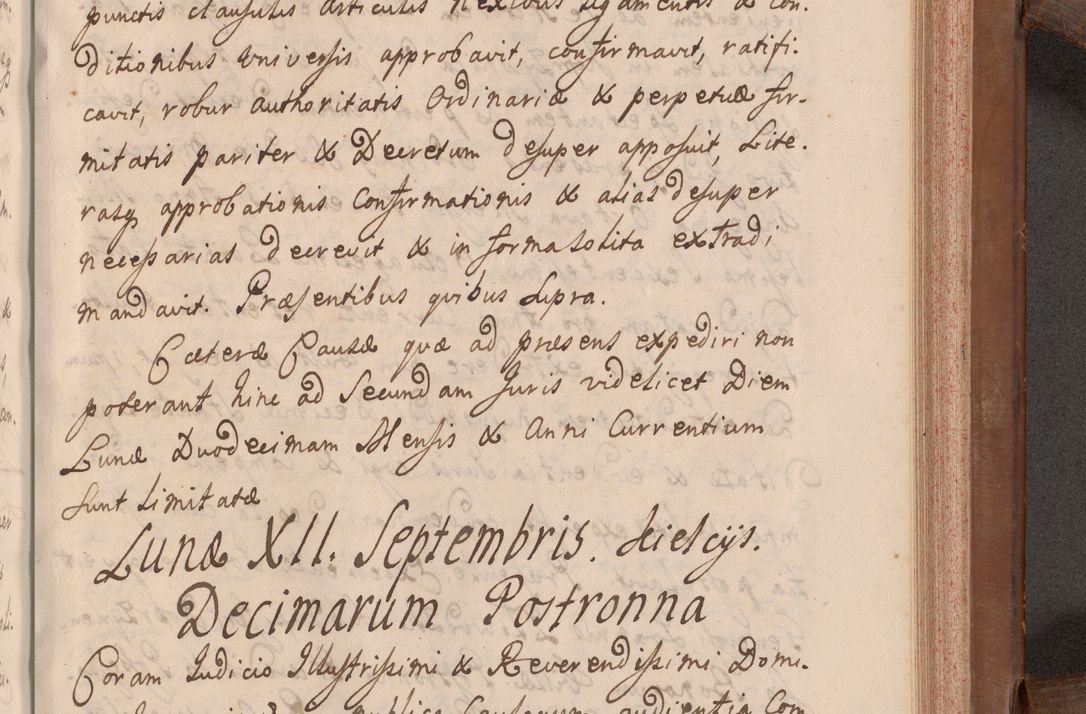 punctis clausulis articulis nexibus ligamentis & con.
ditionibus universis approbavit, confirmavit, ratifi.
cavit, robur authoritatis Ordinariæ & perpetuæ fir.
mitatis pariter & Decretum desuper apposuit, Lite.
rasq approbationis Confirmationis & alias desuper
necessarias decrevit & in forma solita extradi
mandavit. Præsentibus quibus supra.
Cæteræ Causæ quæ ad præsens expediri non
poterant hinc ad Secundam Juris videlicet Diem
Lunæ Duodecimam Mensis & Anni Currentium
sunt Limitatæ
Lunæ XII. Septembris. Kielcijs.
Decimarum Postronna
Coram Judicio Illustrissimi & Reverendissimi Domi.
publica Causarum audientia Com